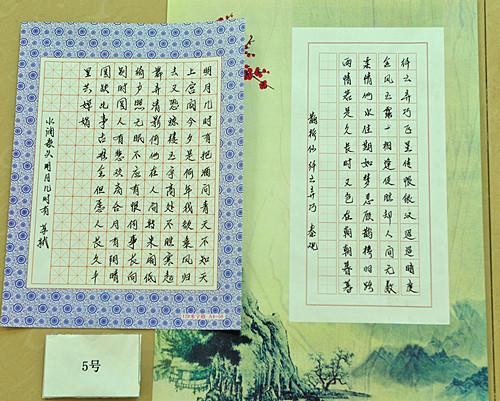 明月几时有把酒问青天不知天
上宫阙今夕是何年我欲乘风归
去又恐琼楼玉宇高处不胜寒起
舞弄清影何似在人间转朱阁低
绮户照无眠不应有恨何事长向
别时圆人有悲欢离合月有阴晴
圆缺此事古难全但愿人长久千
里共婵娟
水调歌头 明月几时有 苏轼
纤云弄巧飞星传恨银汉迢迢暗度
金风玉露一相逢便胜却人间无数
柔情似水佳期如梦忍顾鹊桥归路
两情若是久长时又岂在朝朝暮暮
鹊桥仙 纤云弄巧 秦观
5号